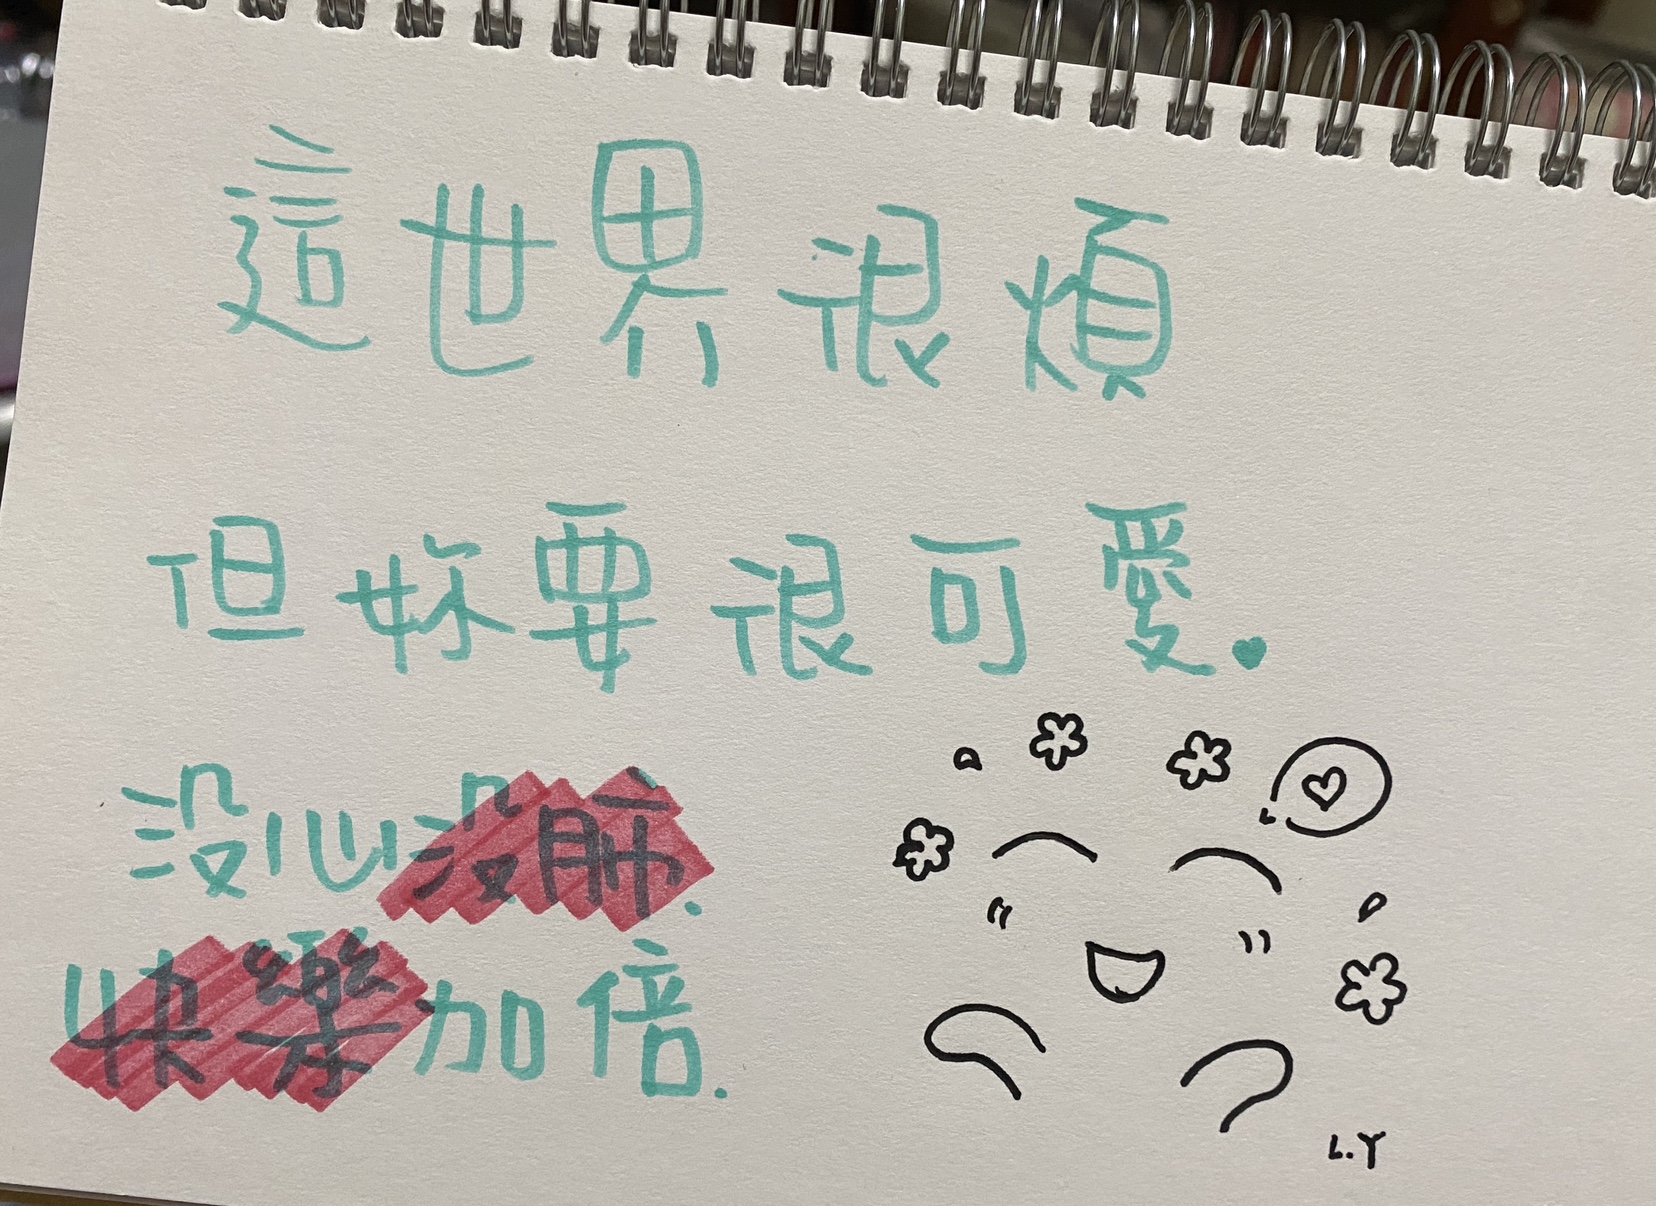 這世界很煩
但妳要很可愛.
沒心沒肺.
快樂加倍.
L.Y